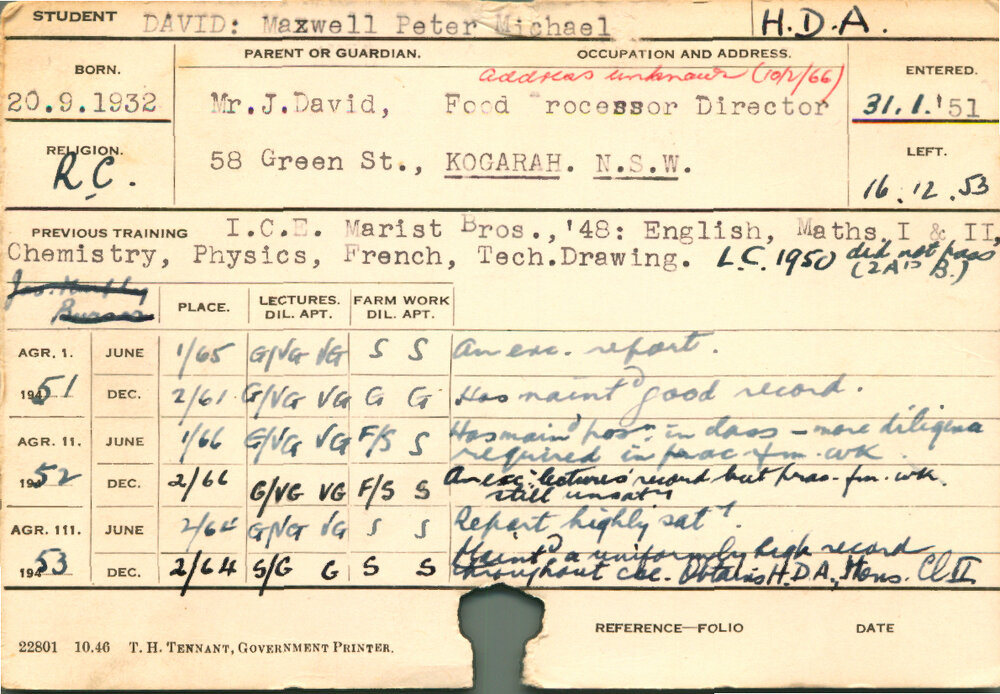 STUDENT DAVID: Maxwell Peter Michael H.D.A.
PARENT OR GUARDIAN. OCCUPATION AND ADDRESS.
BORN. Address unknown (10/2/66) ENTERED.
20.9.1932 Mr.J.David, Food Processor Director 31.1.'51
RELIGION. 58 Green St., KOGARAH. N.S.W. LEFT.
R.C. 16.12.53
PREVIOUS TRAINING I.C.E. Marist Bros.,'48: English, Maths I & II,
Chemistry, Physics, French, Tech.Drawing. L.C. 1950 did not pass
(2A's B.)
Bursar
PLACE. LECTURES. FARM WORK
DIL. APT. DIL. APT.
AGR. I. JUNE 1/65 G/VG VG S S An exc. report.
1951 DEC. 2/61 G/VG VG G G Has maint'd good record.
AGR. II. JUNE 1/66 G/VG VG F/S S Has maint'd pos'n in class - more diligence
required in prac. fm. wk.
1952 DEC. 2/66 G/VG VG F/S S An exc. lectures record but prac. fm. wk.
still unsat'y
AGR. III. JUNE 2/64 G/VG VG S S Report highly sat'y.
1953 DEC. 2/64 S/G G S S Maint'd a uniformly high record
throughout cse. Obtains H.D.A., Hons. Cl II
REFERENCE—FOLIO DATE
22801 10.46 T. H. TENNANT, GOVERNMENT PRINTER.